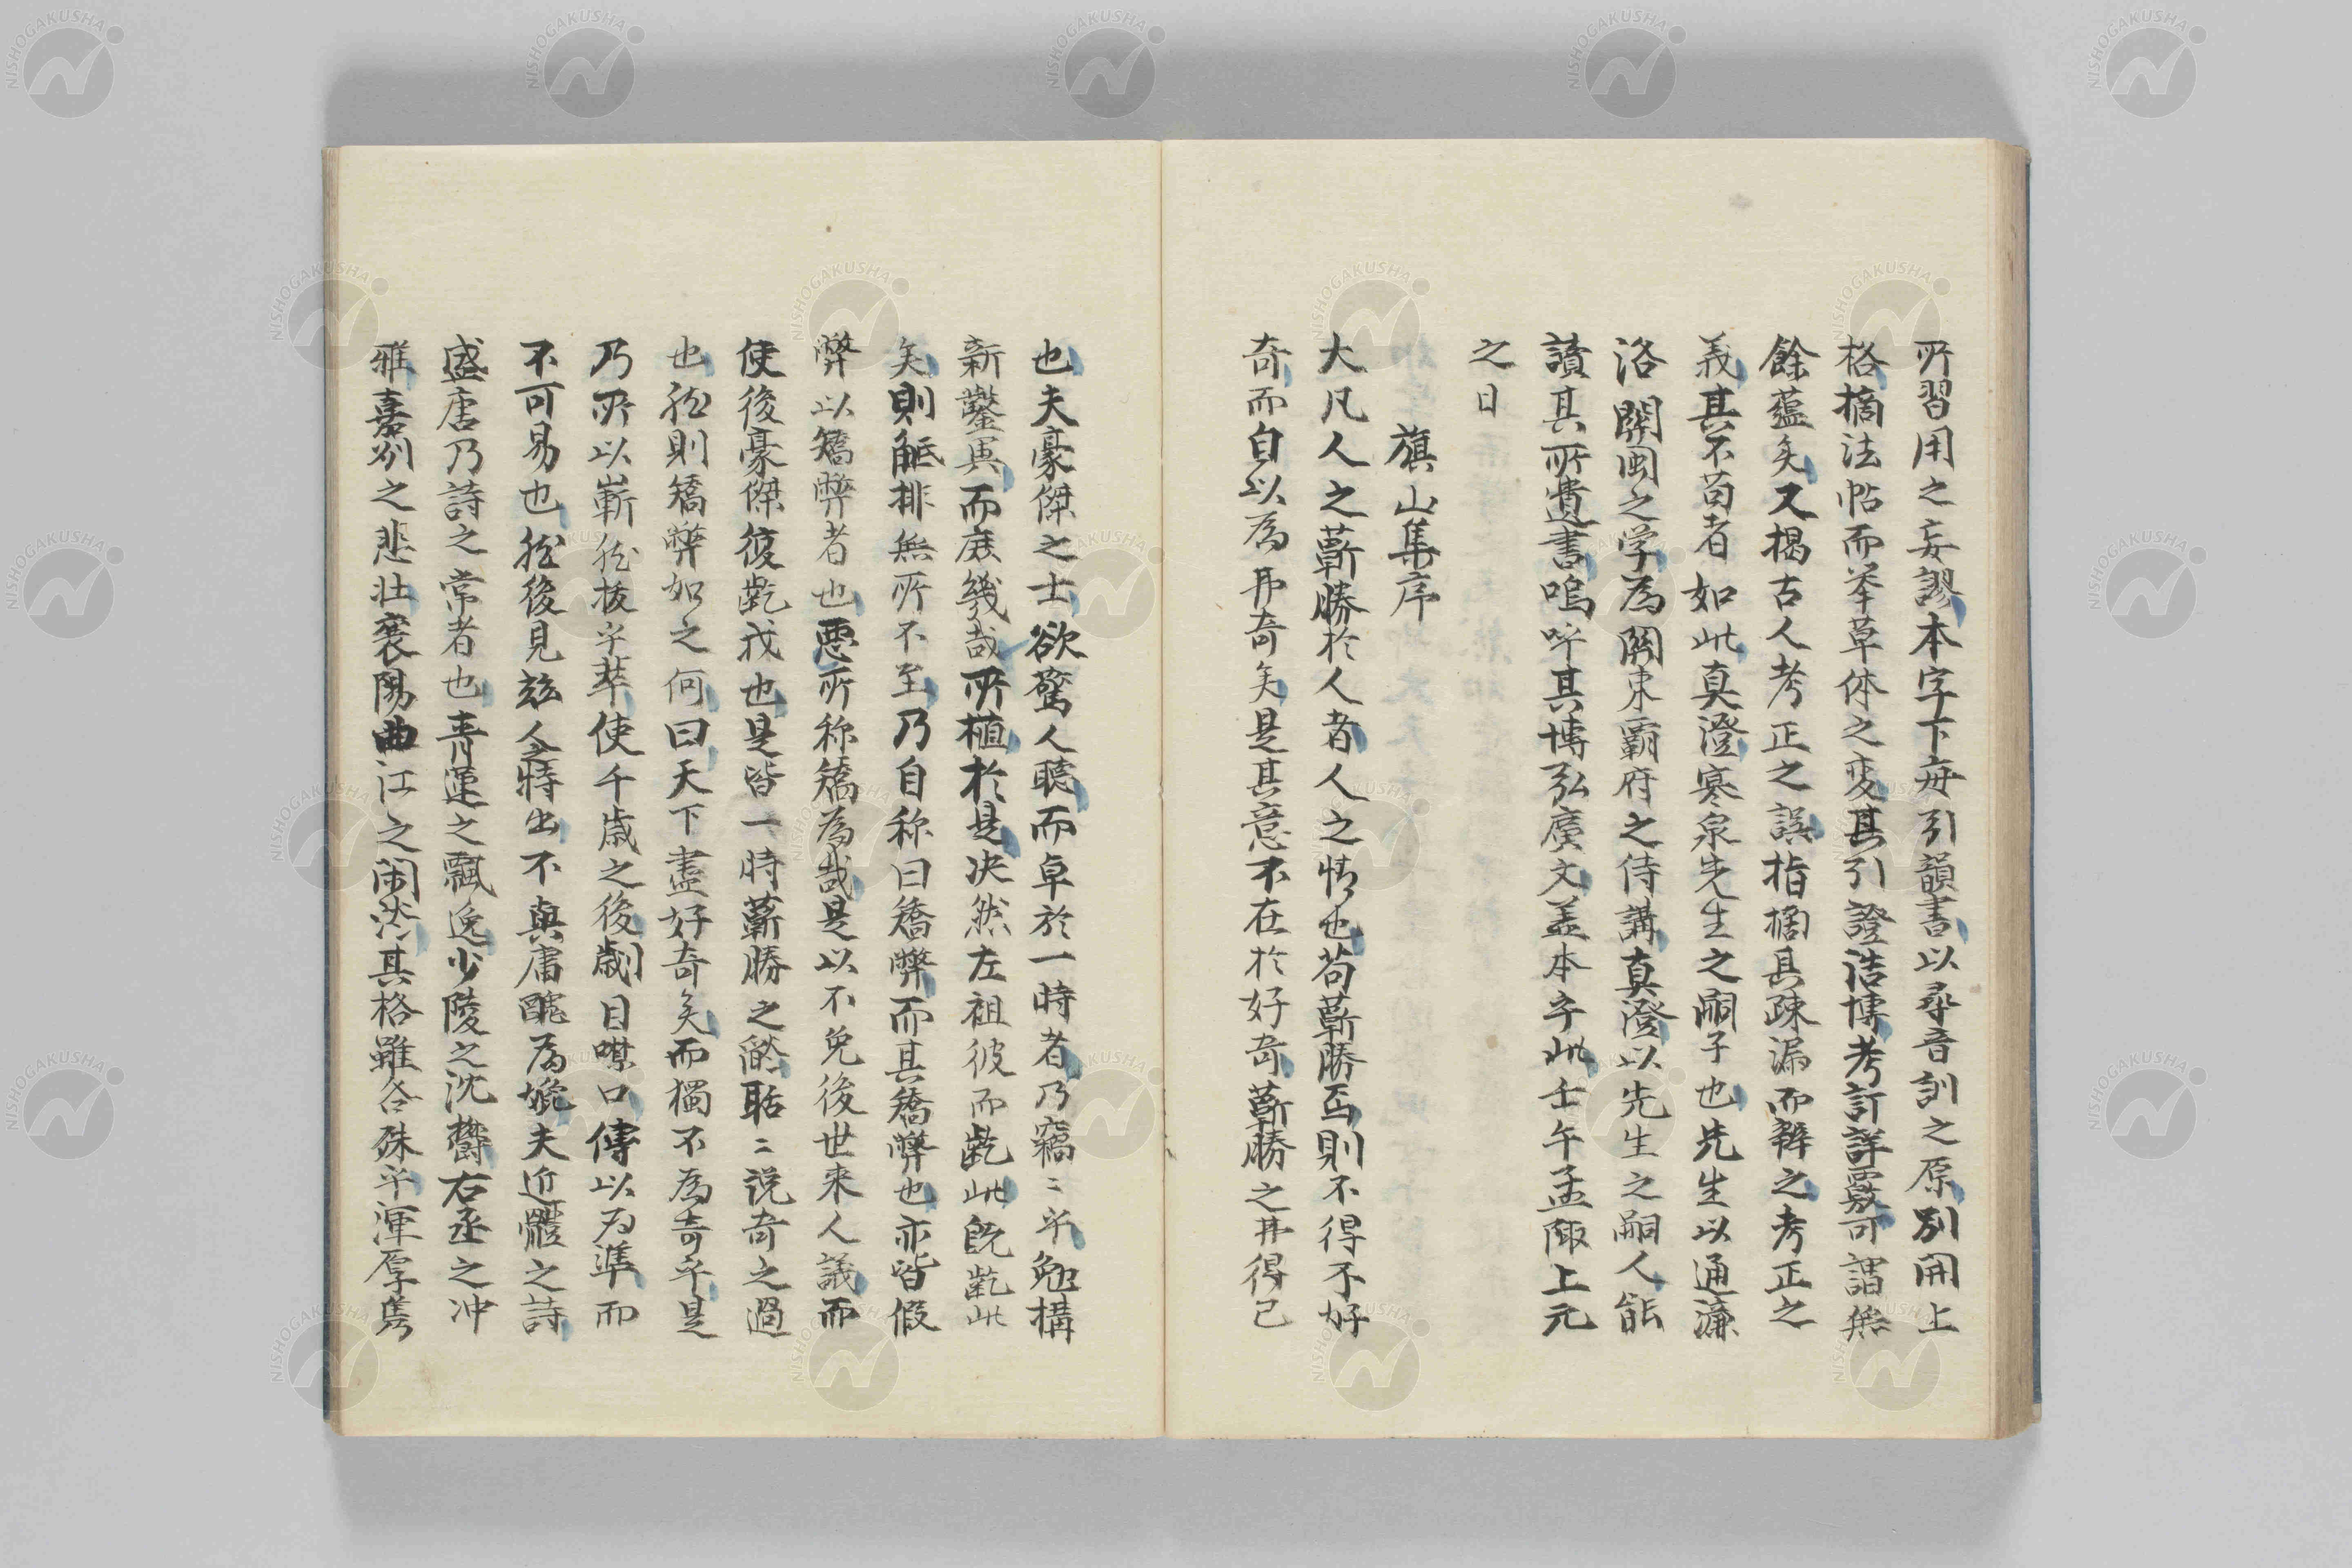 所習用之妄謬本字下毎引韻書以尋音訓之原別開上
格摘法帖而挙草体之変其引證浩博考訂詳覈可謂無
餘蘊矣又掲古人考正之誤指摘其疎漏而辨之考正之
義其不苟者如此真澄寒泉先生之嗣子也先生以通濂
洛関閩之学為関東覇府之侍講真澄以先生之嗣人能
讀其所遺書嗚呼其博弘廣文盖本乎此壬午孟陬上元
之日
旗山集序
大凡人之蘄勝於人者人之情也苟蘄勝焉則不得不好
奇而自以為弗奇矣是其意不在於好奇蘄勝之弗得已
也夫豪傑之士欲驚人聴而卓於一時者乃竊〻乎勉構
新鑿異而庶幾哉所植於是决然左祖彼而齕此既齕此
矣則觝排無所不至乃自称曰矯弊而其矯弊也亦皆假
弊以矯弊者也悪所称矯為哉是以不免後世来人議而
使後豪傑復齕我也是皆一時蘄勝之 聒〻説奇之過
也然則矯弊如之何曰天下盡好奇矣而獨不為奇乎是
乃所以嶄然抜乎萃使千歳之後劌目噤口傳以為準而
不可易也然後見玆人之特出不與庸醜為 夫近體之詩
盛唐乃詩之常者也青蓮之飄逸少陵之沈欝右丞之冲
雅嘉州之悲壮襄陽曲江之閑淡其格雖各殊乎渾厚雋